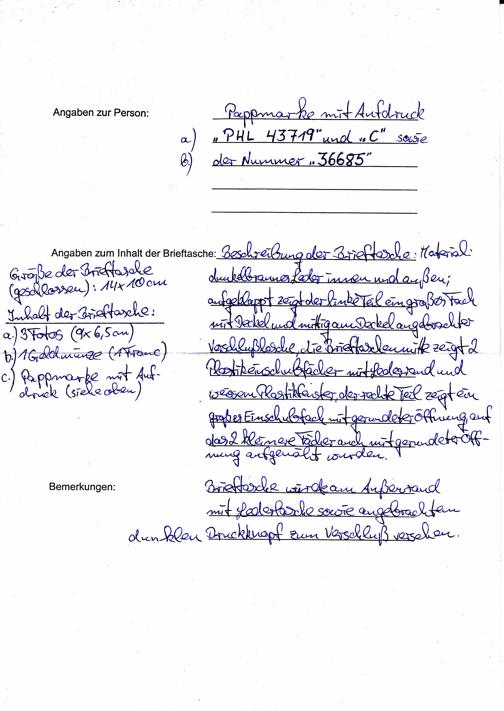 Angaben zur Person: Pappmarke mit Aufdruck
a) "PHL 43719" und "C" sowie
b) der Nummer "36685"
Angaben zum Inhalt der Brieftasche: Beschreibung der Brieftasche: Material:
dunkelbraunes Leder innen und außen;
aufgeklappt zeigt der linke Teil ein großes Fach
mit Deckel und mittig am Deckel angebrachter
Verschlußlasche, die Brieftaschenmitte zeigt 2
Plastikeinschubfächer mit Lederrand und
weissem Plastikfenster, der rechte Teil zeigt ein
großes Einschubfach mit gerundeter Öffnung auf
das 2 kleinere Fächer auch mit gerundeter Öff-
nung aufgenäht wurden.
Größe der Brieftasche
(geschlossen): 14x10cm
Inhalt der Brieftasche:
a) 3 Fotos (9x6,5cm)
b) 1 Goldmünze (1 Franc)
c) Pappmarke mit Auf-
druck (siehe oben)
Bemerkungen: Brieftasche wurde am Außenrand
mit Lederlasche sowie angebrachten
dunklen Druckknopf zum Verschluß versehen.